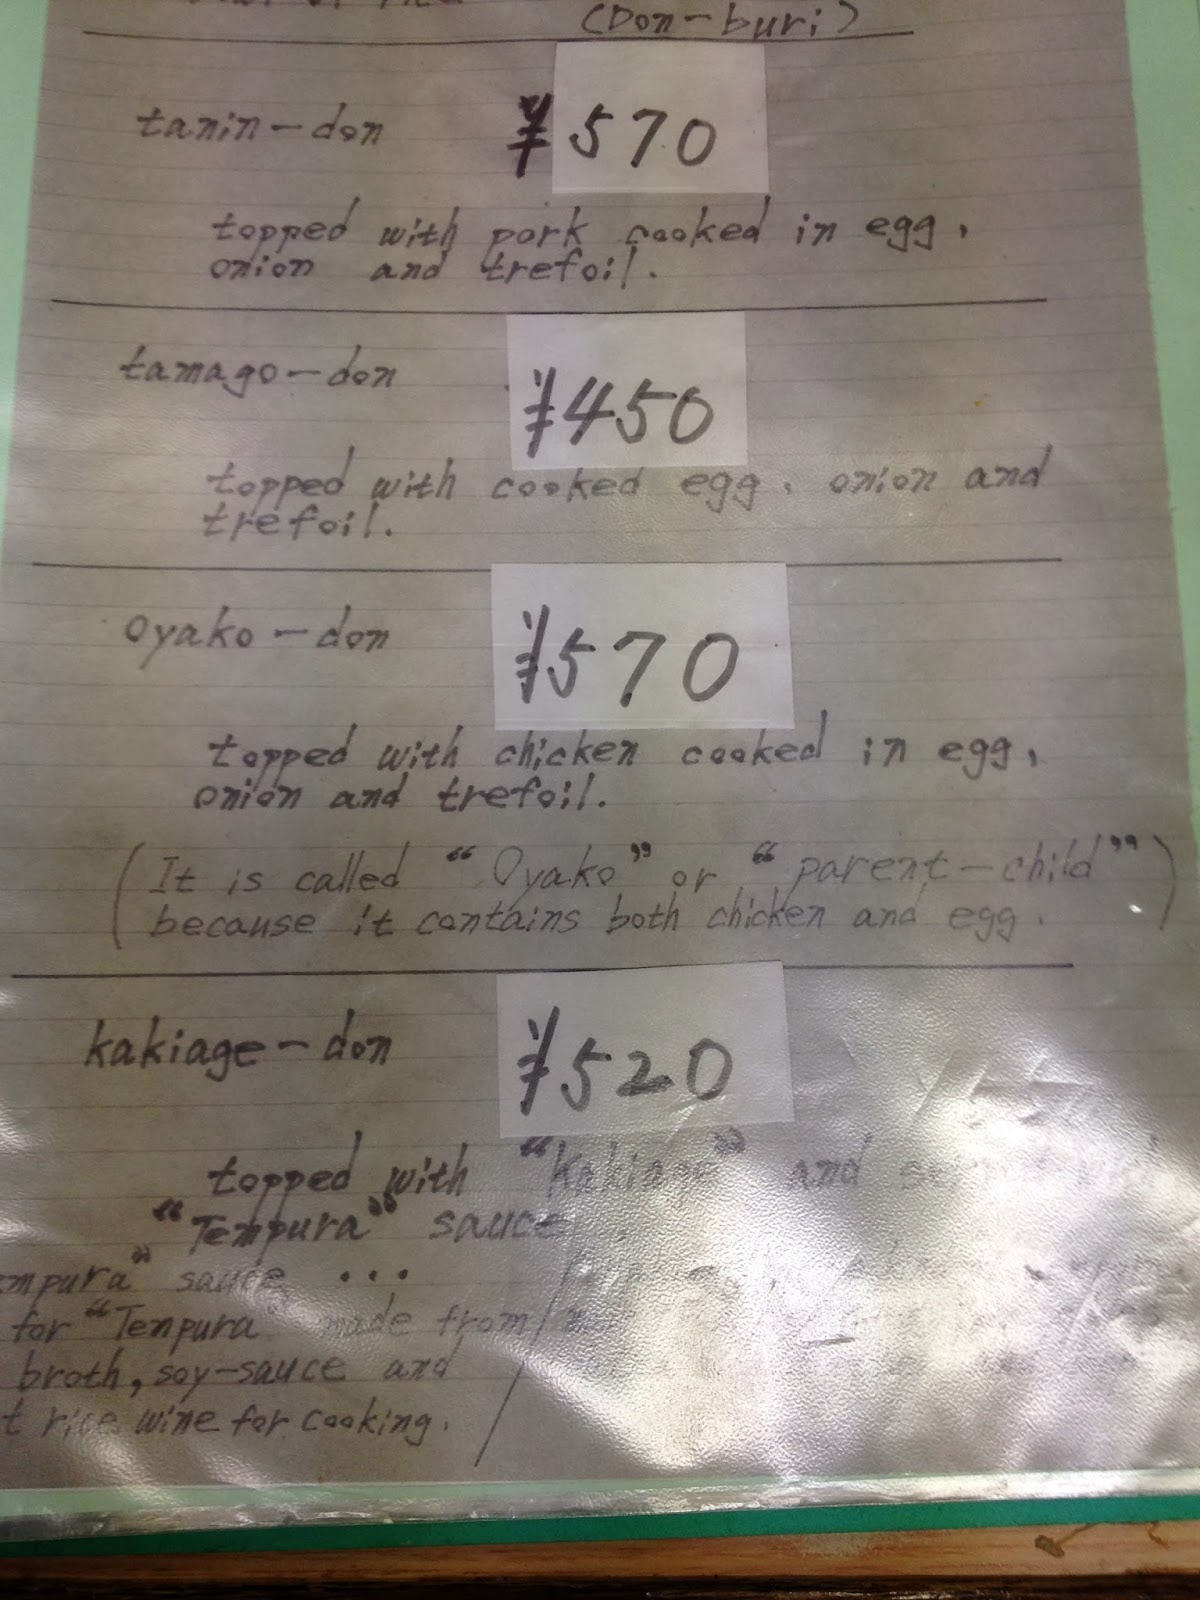 (Don-buri)
tanin-don ¥570
topped with pork cooked in egg,
onion and trefoil.
tamago-don ¥450
topped with cooked egg, onion and
trefoil.
Oyako-don ¥570
topped with chicken cooked in egg,
onion and trefoil.
(It is called "Oyako" or "parent-child"
because it contains both chicken and egg.)
kakiage-don ¥520
topped with "Kakiage" and
"Tempura" sauce
mpura" sauce ...
for "Tenpura" made from
broth, soy-sauce and
t rice wine for cooking.